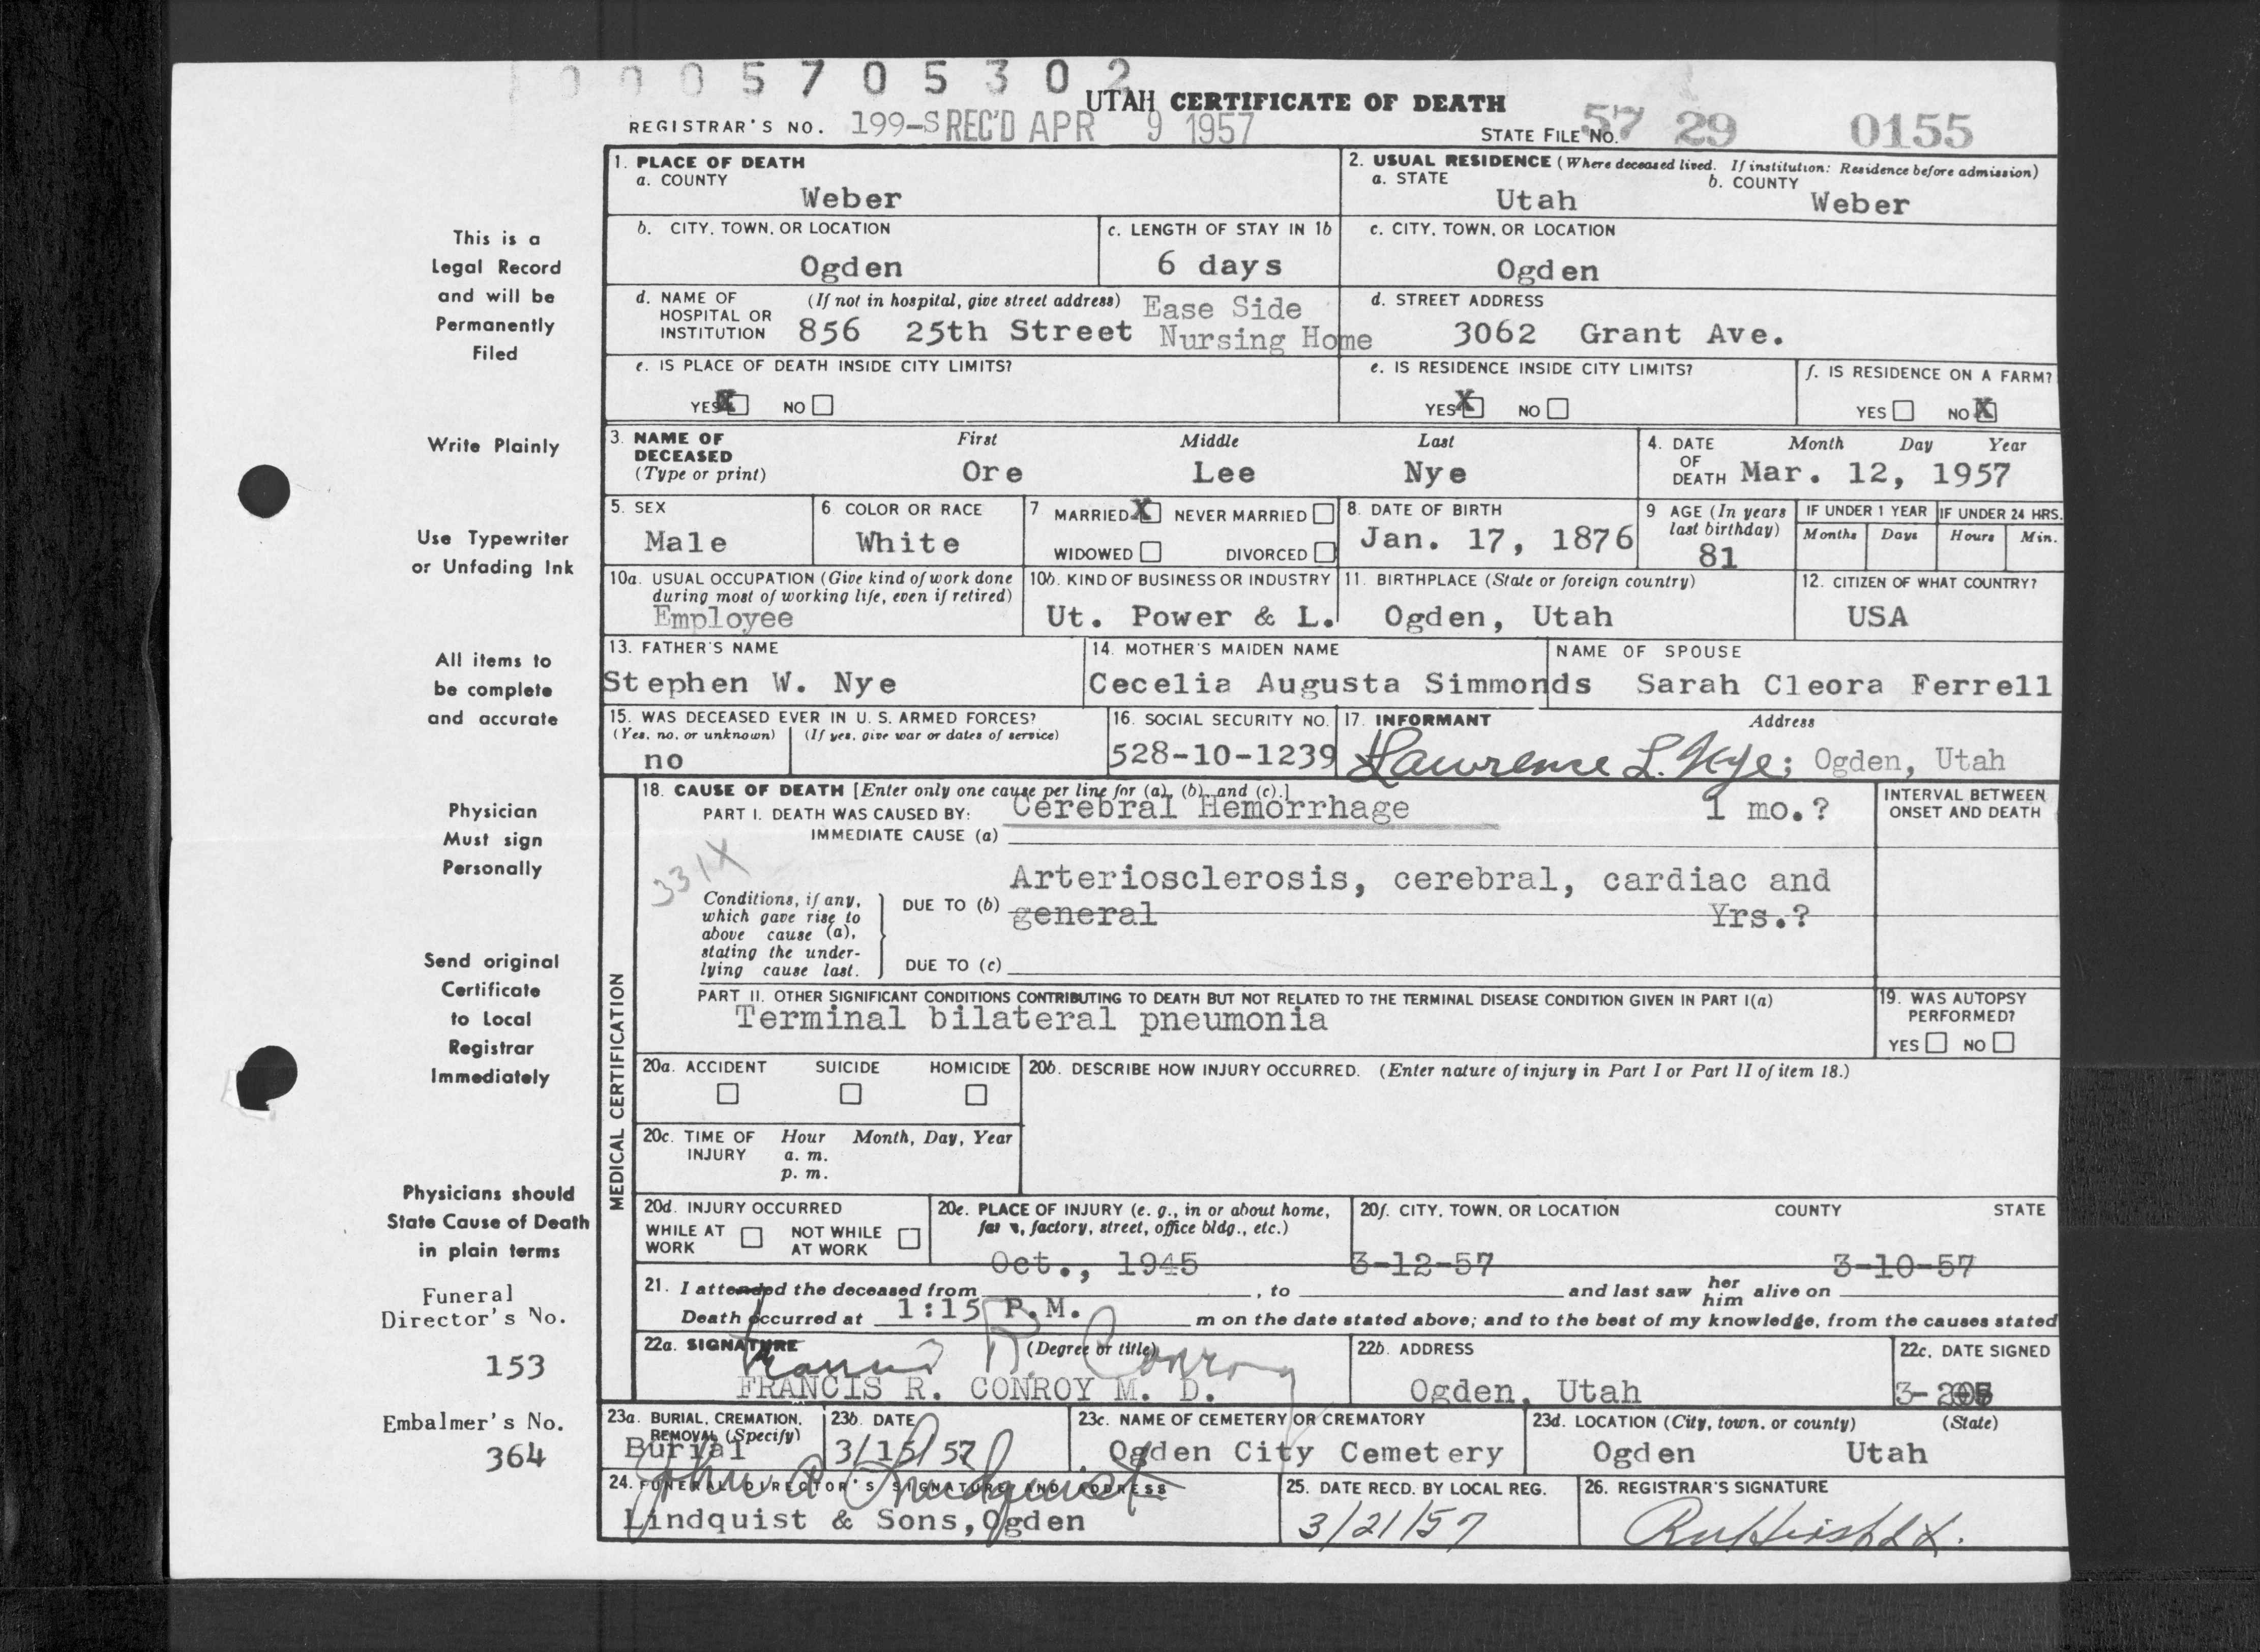 0005705302
UTAH CERTIFICATE OF DEATH
REGISTRAR'S NO. 199-S REC'D APR 9 1957 STATE FILE NO. 57 29 0155
This is a
Legal Record
and will be
Permanently
Filed
Write Plainly
Use Typewriter
or Unfading Ink
All items to
be complete
and accurate
Physician
Must sign
Personally
Send original
Certificate
to Local
Registrar
Immediately
Physicians should
State Cause of Death
in plain terms
Funeral
Director's No.
153
Embalmer's No.
364
1. PLACE OF DEATH
a. COUNTY
Weber
2. USUAL RESIDENCE (Where deceased lived. If institution: Residence before admission)
a. STATE b. COUNTY
Utah Weber
b. CITY, TOWN, OR LOCATION
Ogden
c. LENGTH OF STAY IN 1b
6 days
c. CITY, TOWN, OR LOCATION
Ogden
d. NAME OF (If not in hospital, give street address) Ease Side
HOSPITAL OR
INSTITUTION 856 25th Street Nursing Home
d. STREET ADDRESS
3062 Grant Ave.
e. IS PLACE OF DEATH INSIDE CITY LIMITS?
YES X NO
e. IS RESIDENCE INSIDE CITY LIMITS?
YES X NO
f. IS RESIDENCE ON A FARM?
YES NO X
3. NAME OF First Middle Last
DECEASED
(Type or print) Ore Lee Nye
4. DATE Month Day Year
OF
DEATH Mar. 12, 1957
5. SEX
Male
6 COLOR OR RACE
White
7 MARRIED X NEVER MARRIED
WIDOWED DIVORCED
8. DATE OF BIRTH
Jan. 17, 1876
9 AGE (In years
last birthday)
81
IF UNDER 1 YEAR IF UNDER 24 HRS.
Months Days Hours Min.
10a. USUAL OCCUPATION (Give kind of work done
during most of working life, even if retired)
Employee
10b. KIND OF BUSINESS OR INDUSTRY
Ut. Power & L.
11. BIRTHPLACE (State or foreign country)
Ogden, Utah
12. CITIZEN OF WHAT COUNTRY?
USA
13. FATHER'S NAME
Stephen W. Nye
14. MOTHER'S MAIDEN NAME
Cecelia Augusta Simmonds
NAME OF SPOUSE
Sarah Cleora Ferrell
15. WAS DECEASED EVER IN U. S. ARMED FORCES?
(Yes, no, or unknown) (If yes, give war or dates of service)
no
16. SOCIAL SECURITY NO.
528-10-1239
17. INFORMANT Address
Lawrence L. Nye; Ogden, Utah
MEDICAL CERTIFICATION
18. CAUSE OF DEATH [Enter only one cause per line for (a), (b), and (c).]
PART I. DEATH WAS CAUSED BY: Cerebral Hemorrhage 1 mo.?
IMMEDIATE CAUSE (a)
INTERVAL BETWEEN
ONSET AND DEATH
331X
Arteriosclerosis, cerebral, cardiac and
Conditions, if any,
which gave rise to
above cause (a),
stating the under-
lying cause last.
DUE TO (b) general Yrs.?
DUE TO (c)
PART II. OTHER SIGNIFICANT CONDITIONS CONTRIBUTING TO DEATH BUT NOT RELATED TO THE TERMINAL DISEASE CONDITION GIVEN IN PART I(a)
Terminal bilateral pneumonia
19. WAS AUTOPSY
PERFORMED?
YES NO
20a. ACCIDENT SUICIDE HOMICIDE
20b. DESCRIBE HOW INJURY OCCURRED. (Enter nature of injury in Part I or Part II of item 18.)
20c. TIME OF Hour Month, Day, Year
INJURY a. m.
p. m.
20d. INJURY OCCURRED
WHILE AT NOT WHILE
WORK AT WORK
20e. PLACE OF INJURY (e. g., in or about home,
factory, street, office bldg., etc.)
20f. CITY, TOWN, OR LOCATION COUNTY STATE
Oct., 1945 3-12-57 3-10-57
21. I attended the deceased from , to and last saw her him alive on
Death occurred at 1:15 P.M. m on the date stated above; and to the best of my knowledge, from the causes stated
22a. SIGNATURE (Degree or title)
Francis R. Conroy
FRANCIS R. CONROY M. D.
22b. ADDRESS
Ogden, Utah
22c. DATE SIGNED
23a. BURIAL, CREMATION,
REMOVAL (Specify)
Burial
23b. DATE
3/15/57
23c. NAME OF CEMETERY OR CREMATORY
Ogden City Cemetery
23d. LOCATION (City, town, or county) (State)
Ogden Utah
24. FUNERAL DIRECTOR'S SIGNATURE AND ADDRESS
John A Lindquist
Lindquist & Sons, Ogden
25. DATE RECD. BY LOCAL REG.
3/21/57
26. REGISTRAR'S SIGNATURE